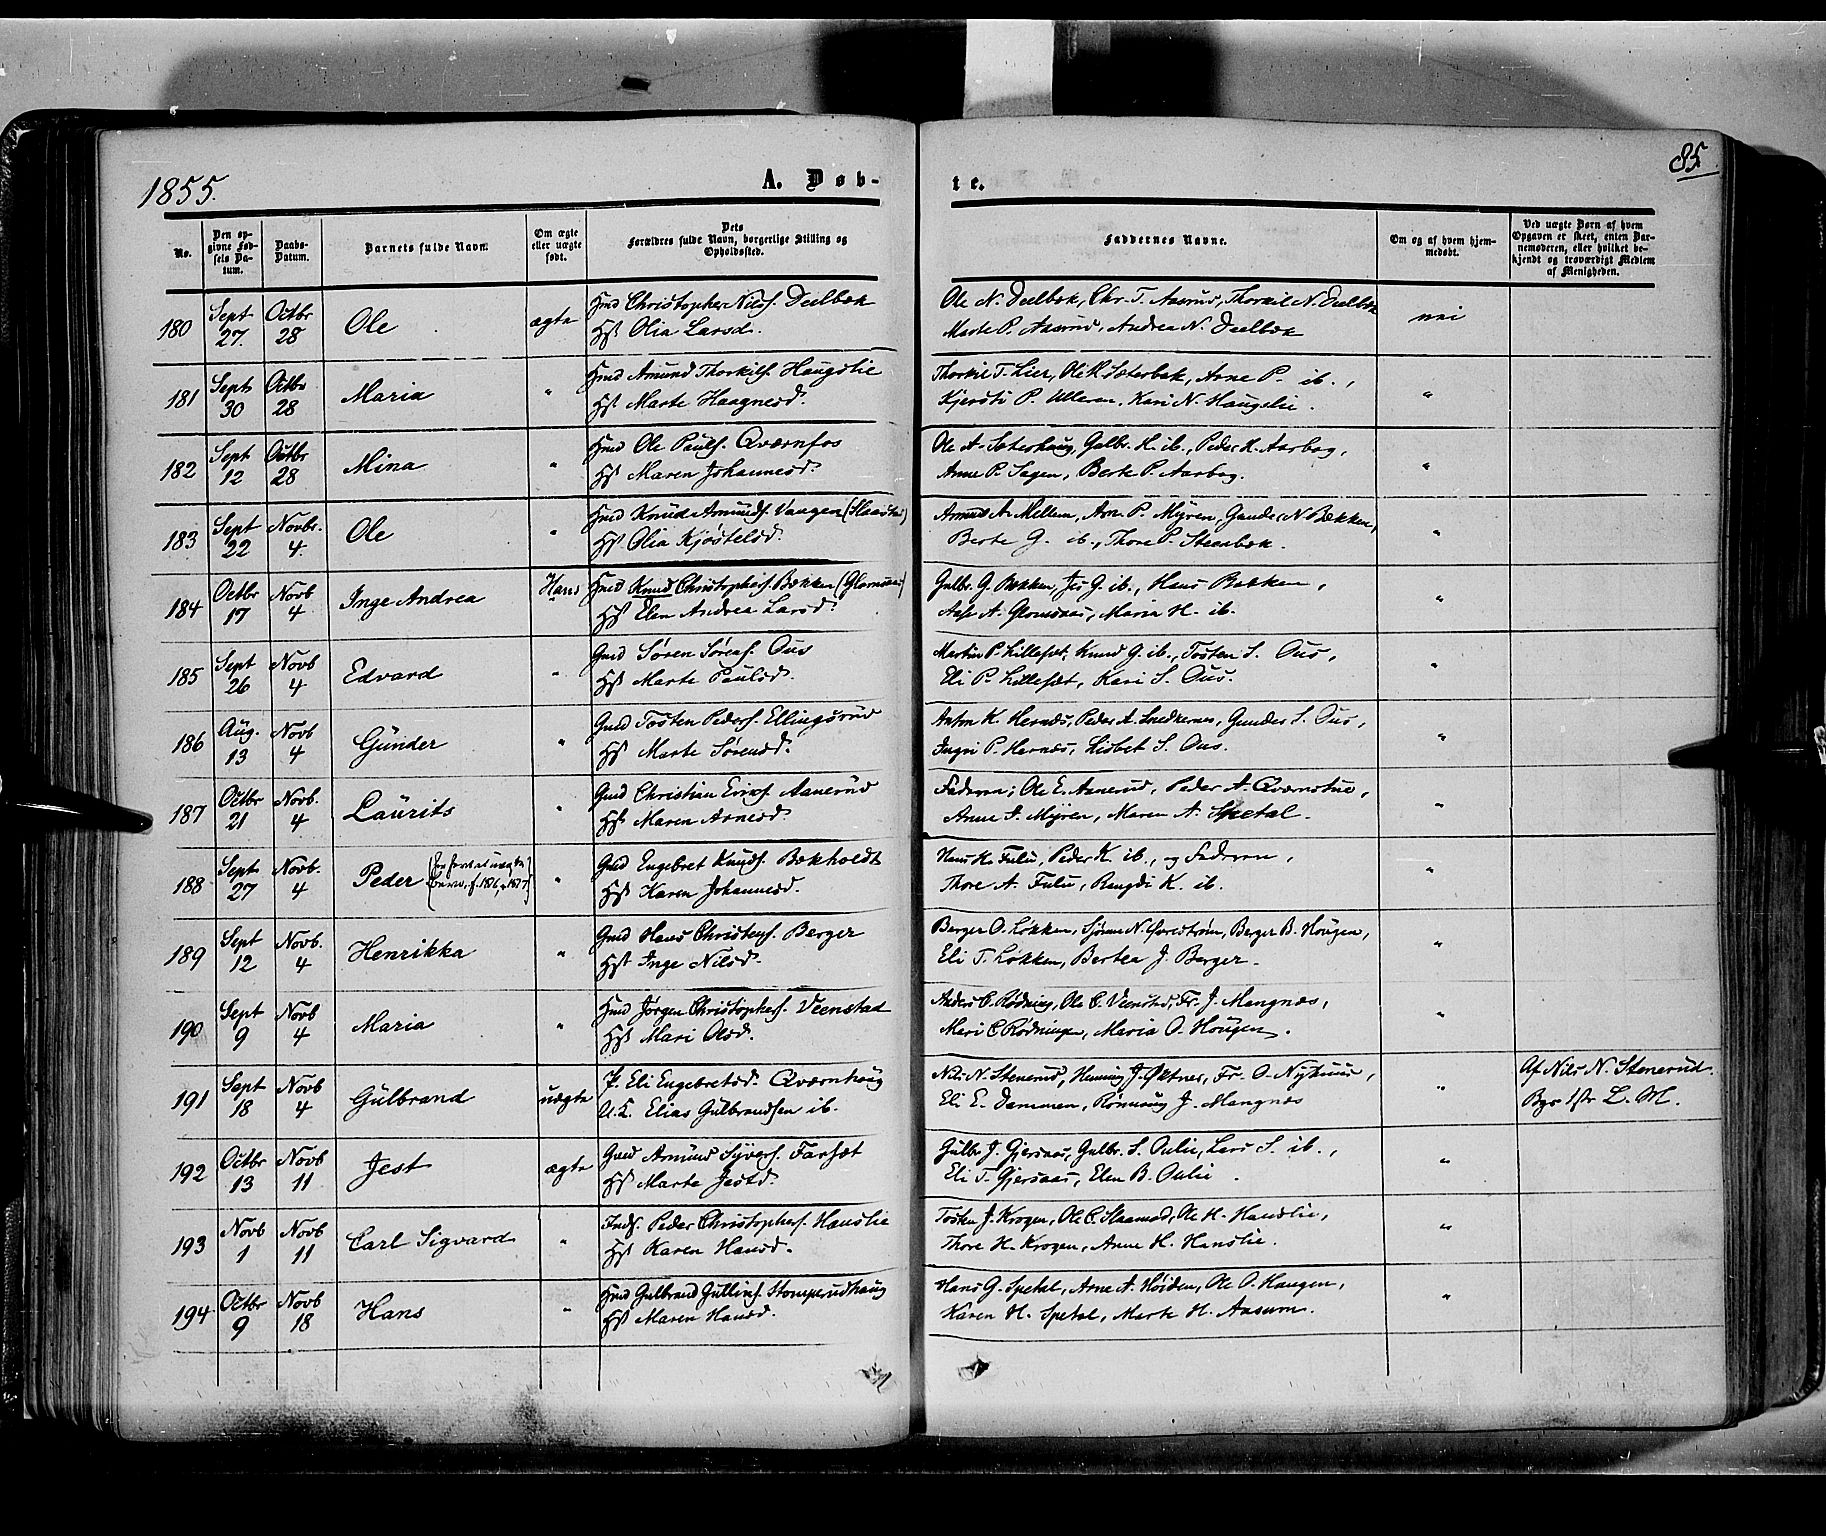 1855.
A. Døb-
te.
85.
No.
Den opgivne Fødsels Datum.
Daabs-Datum.
Barnets fulde Navn.
Om ægte eller uægte født.
Dets Forældres fulde Navn, borgerlige Stilling og Opholdssted.
Faddernes Navne.
Om og af hvem hjemmedøbt.
Ved uægte Børn af hvem Opgaven er skeet, enten Barnemoderen, eller hvilket bekjendt og troværdigt Medlem af Menigheden.
180 Sept 27. Octbr 28 Ole ægte Hmd Christopher Nilss. Deelbek
Hst Olia Larsd.
Ole N. Deelbek, Chr. T. Aasrud, Thorkil N. Deelbek
Marte P. Aasrud, Andrea N. Deelbek
nei
181 Sept 30 Octbr 28 Maria " Hmd Amund Thorkils. Haugslie
Hst Marte Haagnesd.
Thorkil T. Lier, Ole K. Sæterbak, Arne P. ib.,
Kjersti P. Ulleren, Kari N. Haugslie.
"
182 Sept 12 Octbr 28 Mina " Hmd Ole Pauls. Qværnfos
Hst Maren Johannesd.
Ole A. Sæterhaug, Gulbr. H. ib., Peder K. Aarbog,
Anne P. Sagen, Berte P. Aarbog.
"
183 Sept 22 Novbr. 4. Ole " Hmd Knud Amunds. Vangen
Hst Olia Kjøstelsd.
Amund A. Mellem, Arn. P. Myren, Gunder N. Bækken,
Berte G. ib., Thore P. Steenbek.
"
184 Octbr 17 Novb 4 Inge Andrea Hans Hmd Knud Christophers. Bækken
Hst Elen Andrea Larsd.
Gulbr. G. Bækken, Jes G. ib., Hans Bækken,
A. Glomsaas, Maria H. ib.
"
185 Sept 26 Novb 4 Edvard " Gmd Søren Sørens. Ous
Hst Marte Paulsd.
Martin P. Lillesæt, Knud G. ib., Tosten S. Ous,
Eli P. Lillesæt, Kari S. Ous.
"
186 Aug. 13 Novb 4 Gunder " Gmd Tosten Peders. Ellingsrud
Hst Marte Sørensd.
Anton K. Hernæs, Peder A. Snedkernes, Gunder S. Ous,
Ingri P. Hernæs, Lisbet S. Ous.
"
187 Octbr 21 Novb. 4 Laurits " Gmd Christian Eriks. Aanerud
Hst Maren Arnesd.
Faderen; Ole E. Aanerud, Peder A. Qværnstue,
Anne J. Myren, Maren A. Spetal.
"
188 Sept. 27 Novb. 4 Peder " Gmd Engebret Knuds. Bækholdt
Hst Karen Johannesd.
Hans K. Fulu, Peder K. ib., og Faderen,
Thore A. Fulu, Rangdi K. ib.
"
189 Sept 12 Novb. 4 Henrikka " Gmd Hans Christens. Berger
Hst Inge Nilsd.
Berger O. Løkken, N. Berger B. Hougen,
Eli T. Løkken, Bertea J. Berger.
"
190 Sept 9 Novb 4 Maria " Hmd Jørgen Christophers. Veenstad
Hst Mari Olsd.
Anders C. Rødning, Ole C. Veenstad, Fr. J. Mangnæs,
Mari C. Rødningen, Maria O. Hougen.
"
191 Sept 18 Novb 4 Gulbrand uægte P. Eli Engebretsd. Qværnhaug
U.K. Elias Gulbrandsen ib.
Nils N. Stenerud, Henning J. Øktner, Fr. O. Nyhuus,
Eli E. Dammen, Rønnaug J. Mangnæs
"
Af Nils N. Stenerud.
192 Octbr 13 Novb 11 Jest ægte Gmd Amund Syvers. Farsæt
Hst Marte Jestd.
Gulbr J. Gjersaas, Gulbr. S. Oulie, Lars S. ib.,
Eli T. Gjersaas, Elen B. Oulie.
"
193 Novb 1 Novb 11 Carl Sigvard " Inds. Peder Christophers. Hanslie
Hst Karen Hansd.
Tosten J. Krogen, Ole C. Slaamod, Ole H. Hanslie,
Thore H. Krogen, Anne H. Hanslie.
"
194 Octbr 9 Novb 18 Hans " Hmd Gulbrand Gullins. Stomperudhaug
Hst Maren Hansd.
Hans G. Spetal, Arne A. Høiden, Ole O. Haugen,
Karen H. Spetal, Marte H. Aasum.
"